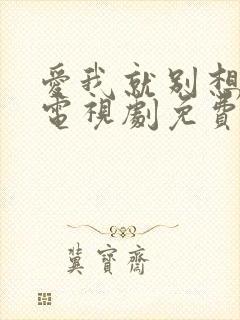 愛我就別想
電視劇免費
冀寶齋